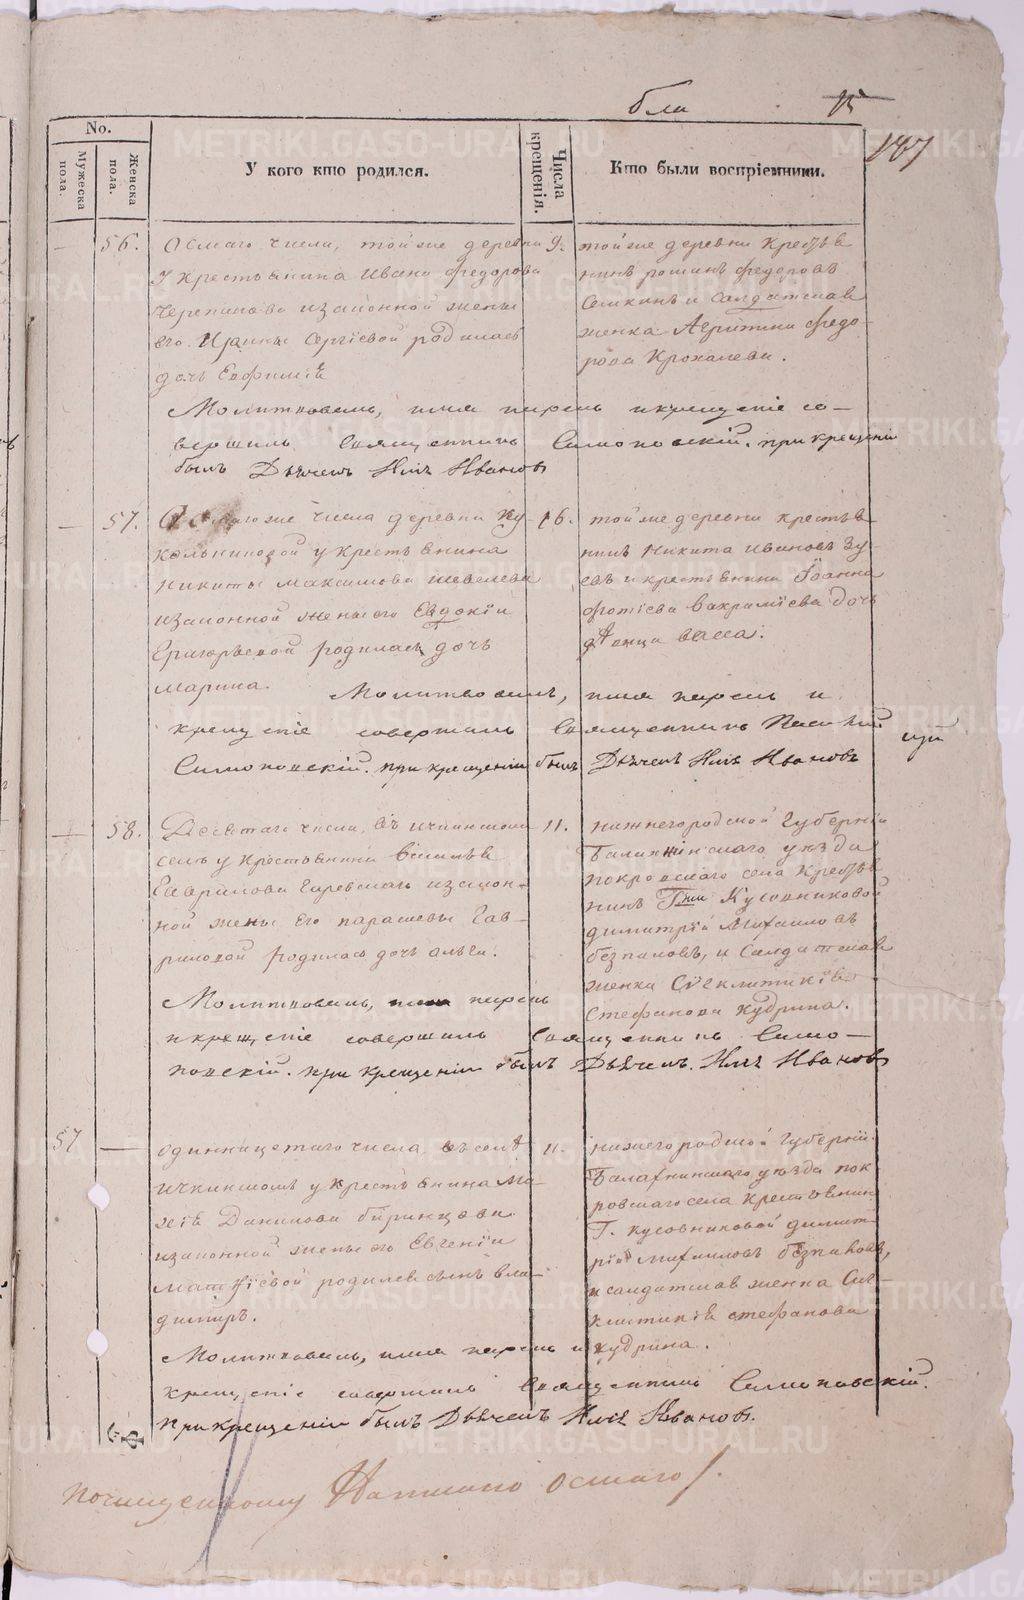 187
No.
Мужеска пола.
Женска пола.
У кого кто родился.
Числа крещенія.
Кто были воспріемники.
56.
Осмаго числа, тойже деревни
у крестьянина Ивана Федорова
изаконной жены
его Ирины Сергіевой родилась
дочь Евфимія
9.
тойже деревни крестья
нинъ Федоровъ
и солдатская
женка Федо-
рова Крохалева.
Молитвовалъ, имя нарекъ и крещеніе со-
вершилъ Священникъ Симоновскій. при крещеніи
былъ Дьячекъ Илія Ивановъ
57.
Осмагоже числа деревни Ку
кольниковой у крестьянина
Никиты Максимова Шевелева
изаконной жены его Евдокіи
Григорьевой родилась дочь
Марина.
16.
тойже деревни крестья
нинъ Никита Ивановъ Зу-
евъ и крестьянина Іоанна
Фотіева дочь
девица Васса.
Молитвовалъ, имя нарекъ и
крещеніе совершилъ Священникъ
Симоновскій. при крещеніи былъ Дьячекъ Илія Ивановъ
58.
Десятаго числа, въ Ичкинскомъ
селѣ у крестьянина Василья
Гаврилова изакон-
ной жены его Парасковьи Гав-
риловой родилась дочь Ольга.
11.
Нижегородской Губерніи
Балахнинскаго уѣзда
Покровскаго села крестья
нинъ Гжи Кусовниковой
Димитрій Михаиловъ
и Солдатская
женка Сѵнклитикія
Стефанова Кудрина.
Молитвовалъ, имя нарекъ
и крещеніе совершилъ Священникъ Симо-
новскій. при крещеніи былъ Дьячекъ. Илія Ивановъ
57
одиннацетаго числа въ селѣ
Ичкинскомъ у крестьянина Ма-
Данилова Бирюнцова
изаконной жены его Евгеніи
Матѳіевой родился сынъ Вла-
димиръ.
11.
Нижегородской Губерніи.
Балахнинскаго уѣзда Пок-
ровскаго села крестьянин
Г. Кусовниковой Димит-
рій Михаиловъ
и солдатская женка Син-
клитикія Стефанова
Кудрина.
Молитвовалъ, имя нарекъ и
крещеніе совершилъ Священникъ Симоновскій.
при крещеніи былъ Дьячекъ Илія Ивановъ.
почищенному Написано осмаго
METRIKI.GASO-URAL.RU